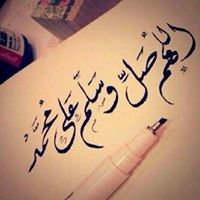 اللهم صلِّ وسلم على محمد